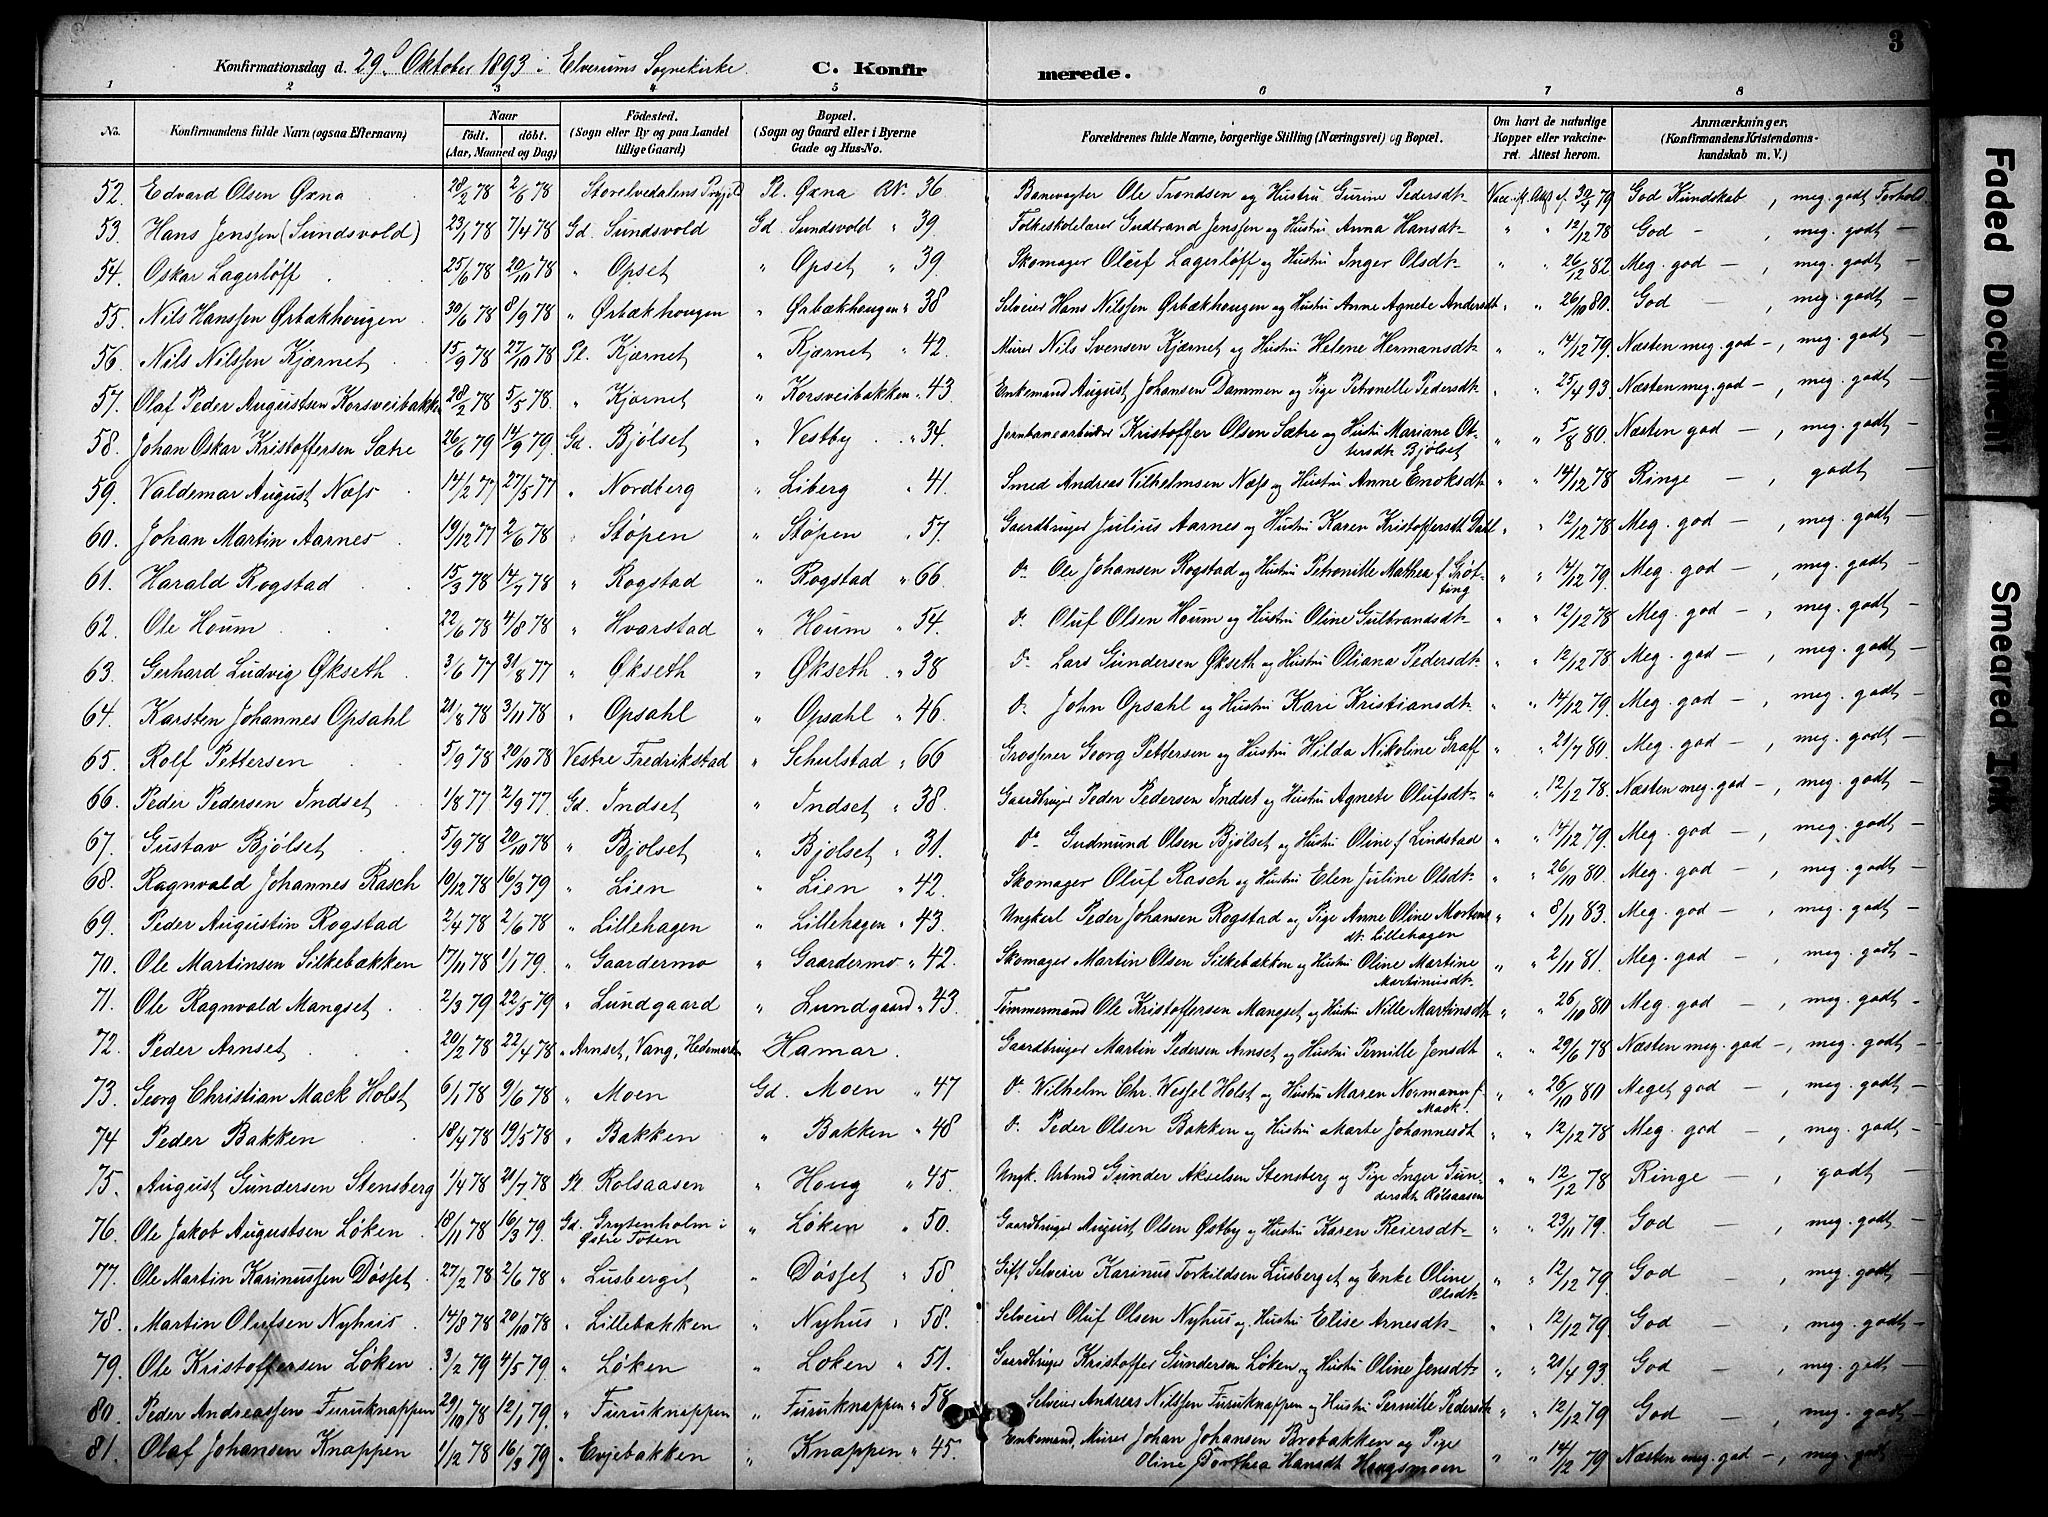 Konfirmationsdag d. 29d Oktober 1893 i Elverums Sognekirke. C. Konfirmerede. 3
1 2 3 4 5 6 7 8
No. Konfirmandens fulde Navn (ogsaa Efternavn) Naar født. døbt. (Aar, Maaned og Dag) Fødested. (Sogn eller By og paa Landet tillige Gaard) Bopæl. (Sogn og Gaard eller i Byerne Gade og Hus-No. Forældrenes fulde Navne, borgerlige Stilling (Næringsvei) og Bopæl. Om havt de naturlige Kopper eller vakcineret. Attest herom. Anmærkninger, (Konfirmandens Kristendomskundskab m. V.)
52. Edvard Olsen Øxna 28/2 78 2/6 78 Storelvedalens Pl. Øxna RN. 36 Banevogter Ole Trondsen og Hustru Gurine Pedersdt. 30/4 79 God Kundskab, meg. godt Forhold
53. Hans Jenssen (Sundsvold) 23/1 78 7/4 78 Gd. Sundsvold Gd. Sundsvold " 39 Folkeskolelærer Gudbrand Jenssen og Hustru Anna Hansdt. " " 12/12 78 God - , meg. godt -
54. Oskar Lagerløff 25/6 78 20/10 78 " Opset " Opset " 39. Skomager Oluf Lagerløff og Hustru Inger Olsdt. " " 26/12 82 Meg. god - , meg. godt -
55. Nils Hanssen Ørbækhougen 30/6 78 8/9 78 " Ørbækhougen " Ørbækhougen " 38 Selveier Hans Nilssen Ørbækhougen og Hustru Anne Agnete Andersdt " " 26/10 80. God - , meg. godt -
56. Nils Nilssen Kjærnet 15/9 78 27/10 78 Pl. Kjærnet " Kjærnet " 42. Murer Nils Svensen Kjærnet og Hustru Helene Hermansdt. " " 14/12 79. Næsten meg. god -, meg. godt -
57. Olaf Peder Augustsen Korsveibakken 28/2 78 5/5 78. " Kjærnet " Korsveibakken " 43 Enkemand August Johansen Dammen og Pige Petronelle Pedersdt. " " 25/4 93 Næsten meg. god -, meg. godt -
58. Johan Oskar Kristoffersen Sætre 26/6 79 14/9 79. Gd. Bjølset " Vestby " 34. Jernbanearbeider Kristoffer Olsen Sætre og Hustru Mariane Ottersdt. Bjølset " " 5/8 80. Næsten god - , meg. godt -
59. Valdemar August Næss 14/2 77 27/5 77 " Nordberg " Liberg " 41. Smed Andreas Vilhelmsen Næss og Hustru Anne Enoksdt. " " 14/12 78 Ringe - , godt -
60. Johan Martin Aarnes 19/12 77 2/6 78 " Støpen " Støpen " 57. Gaardbruger Julius Aarnes og Hustru Karen Kristoffersdt. Dahl " " 12/12 78 Meg. god - , meg. godt -
61. Harald Rogstad 15/3 78 14/7 78 " Rogstad " Rogstad " 66 Do Ole Johansen Rogstad og Hustru Petronille Mathea f. Grøtting " " 14/12 79. Meg. god - , meg. godt -
62. Ole Houm 22/6 78 4/8 78 " Hvarstad " Houm " 54. Do Oluf Olsen Houm og Hustru Oline Gulbrandsdt. " " 12/12 78 Meg. god - , meg. godt -
63. Gerhard Ludvig Økseth 3/6 77 31/8 77 " Økseth " Økseth " 38 Do Lars Gundersen Økseth og Hustru Oliana Pedersdt. " " 12/12 78. Meg. god - , meg. godt -
64. Karsten Johannes Opsahl 21/8 78 3/11 78 " Opsahl " Opsahl " 46. Do John Opsahl og Hustru Kari Kristiansdt. " " 14/12 79. Meg. god - , meg. godt -
65. Rolf Pettersen 5/9 78 20/10 78 Vestre Fredrikstad " Schulstad " 66 Grosserer Georg Pettersen og Hustru Hilda Nikoline Graff " " 21/7 80. Meg. god - , meg. godt -
66. Peder Pedersen Indset 1/8 77 2/9 77. Gd. Indset " Indset " 38. Gaardbruger Peder Pedersen Indset og Hustru Agnete Olufsdt. " " 12/12 78. Næsten meg. god -, meg. godt -
67. Gustav Bjølset 5/9 78 20/10 78 " Bjølset " Bjølset " 31. Do Gudmund Olsen Bjølset og Hustru Oline f. Lindstad " " 14/12 79. Meg. god - , meg. godt -
68. Ragnvald Johannes Rasch 19/12 78 16/3 79 " Lien " Lien " 42 Skomager Oluf Rasch og Hustru Elen Juline Olsdt. " " 26/10 80. Meg. god - , meg. godt -
69. Peder Augustin Rogstad 2/4 78 2/6 78 " Lillehagen " Lillehagen " 43. Ungkarl Peder Johansen Rogstad og Pige Anne Oline Mortensdt. Lillehagen " " 8/11 83. Meg. god - , meg. godt -
70. Ole Martinsen Silkebækken 17/11 78 1/1 79. " Gaardermo " Gaardermo " 42. Skomager Martin Olsen Silkebækken og Hustru Oline Martine Martinusdt. " " 2/11 81. Meg. god - , meg. godt -
71. Ole Ragnvald Mangset 2/3 79 22/5 79 " Lundgaard " Lundgaard " 43. Tømmermand Ole Kristoffersen Mangset og Hustru Nille Martinsdt. " " 26/10 80 Meg. god - , meg. godt -
72. Peder Arnset 20/2 78 22/4 78 " Arnset, Vang, Hedemarken Hamar. Gaardbruger Martin Pedersen Arnset og Hustru Pernille Jensdt. " " 29/6 78 Næsten meg. god -, meg. godt -
73. Georg Christian Mack Holst 6/1 78 9/6 78 " Moen Gd. Moen " 47 Do Wilhelm Chr. Wessel Holst og Hustru Maren Normann f. Mack. " " 26/10 80 Meget god - , meg. godt -
74 Peder Bakken 18/4 78 19/5 78 " Bakken " Bakken " 48 Do Peder Olsen Bakken og Hustru Marte Johannesdt " " 12/12 78 Meg. god - , meg. godt -
75. August Gundersen Stensberg 1/4 78 21/7 78 Pl. Rolsaasen " Houg " 45. Ungk. Arbmd Gunder Akselsen Stensberg og Pige Inger Gundersdt. Rolsaasen " " 12/12 78 Ringe - , godt -
76. Ole Jakob Augustsen Løken 18/11 78 16/3 79. Gd. Grytenholm i Østre Toten " Løken " 50. Gaardbruger August Olsen Østby og Hustru Karen Reiersdt. " " 23/11 79. God - , meg. godt -
77. Ole Martin Karinussen Døsset 27/2 78 2/6 78 " Lusberget " Døsset " 58. Gift Selveier Karinus Torkildsen Lusberget og Enke Oline Olsdt. " " 12/12 79. God - , meg. godt -
78. Martin Olufsen Nyhus 14/8 78 20/10 78 " Lillebakken " Nyhus " 58. Selveier Oluf Olsen Nyhus og Hustru Elise Arnesdt. " " 12/12 79. God - , meg. godt -
79. Ole Kristoffersen Løken 3/2 79 4/5 79. " Løken " Løken " 51. Gaardbruger Kristoffer Gundersen Løken og Hustru Oline Jensdt. " " 21/4 93 God - , meg. godt -
80. Peder Andreassen Furuknappen 29/10 78 12/1 79. " Furuknappen " Furuknappen " 58 Selveier Andreas Nilssen Furuknappen og Hustru Pernille Pedersdt. " " 12/12 79 God - , meg. godt -
81. Olaf Johansen Knappen 1/12 78 16/3 79 " Evjebakken " Knappen " 45. Enkemand, Murer Johan Johansen Brobakken og Pige Oline Dorthea Hansdt Haugsmoen " " 14/12 79 Næsten meg. god -, meg. godt -
Faded Document
Smeared Ink